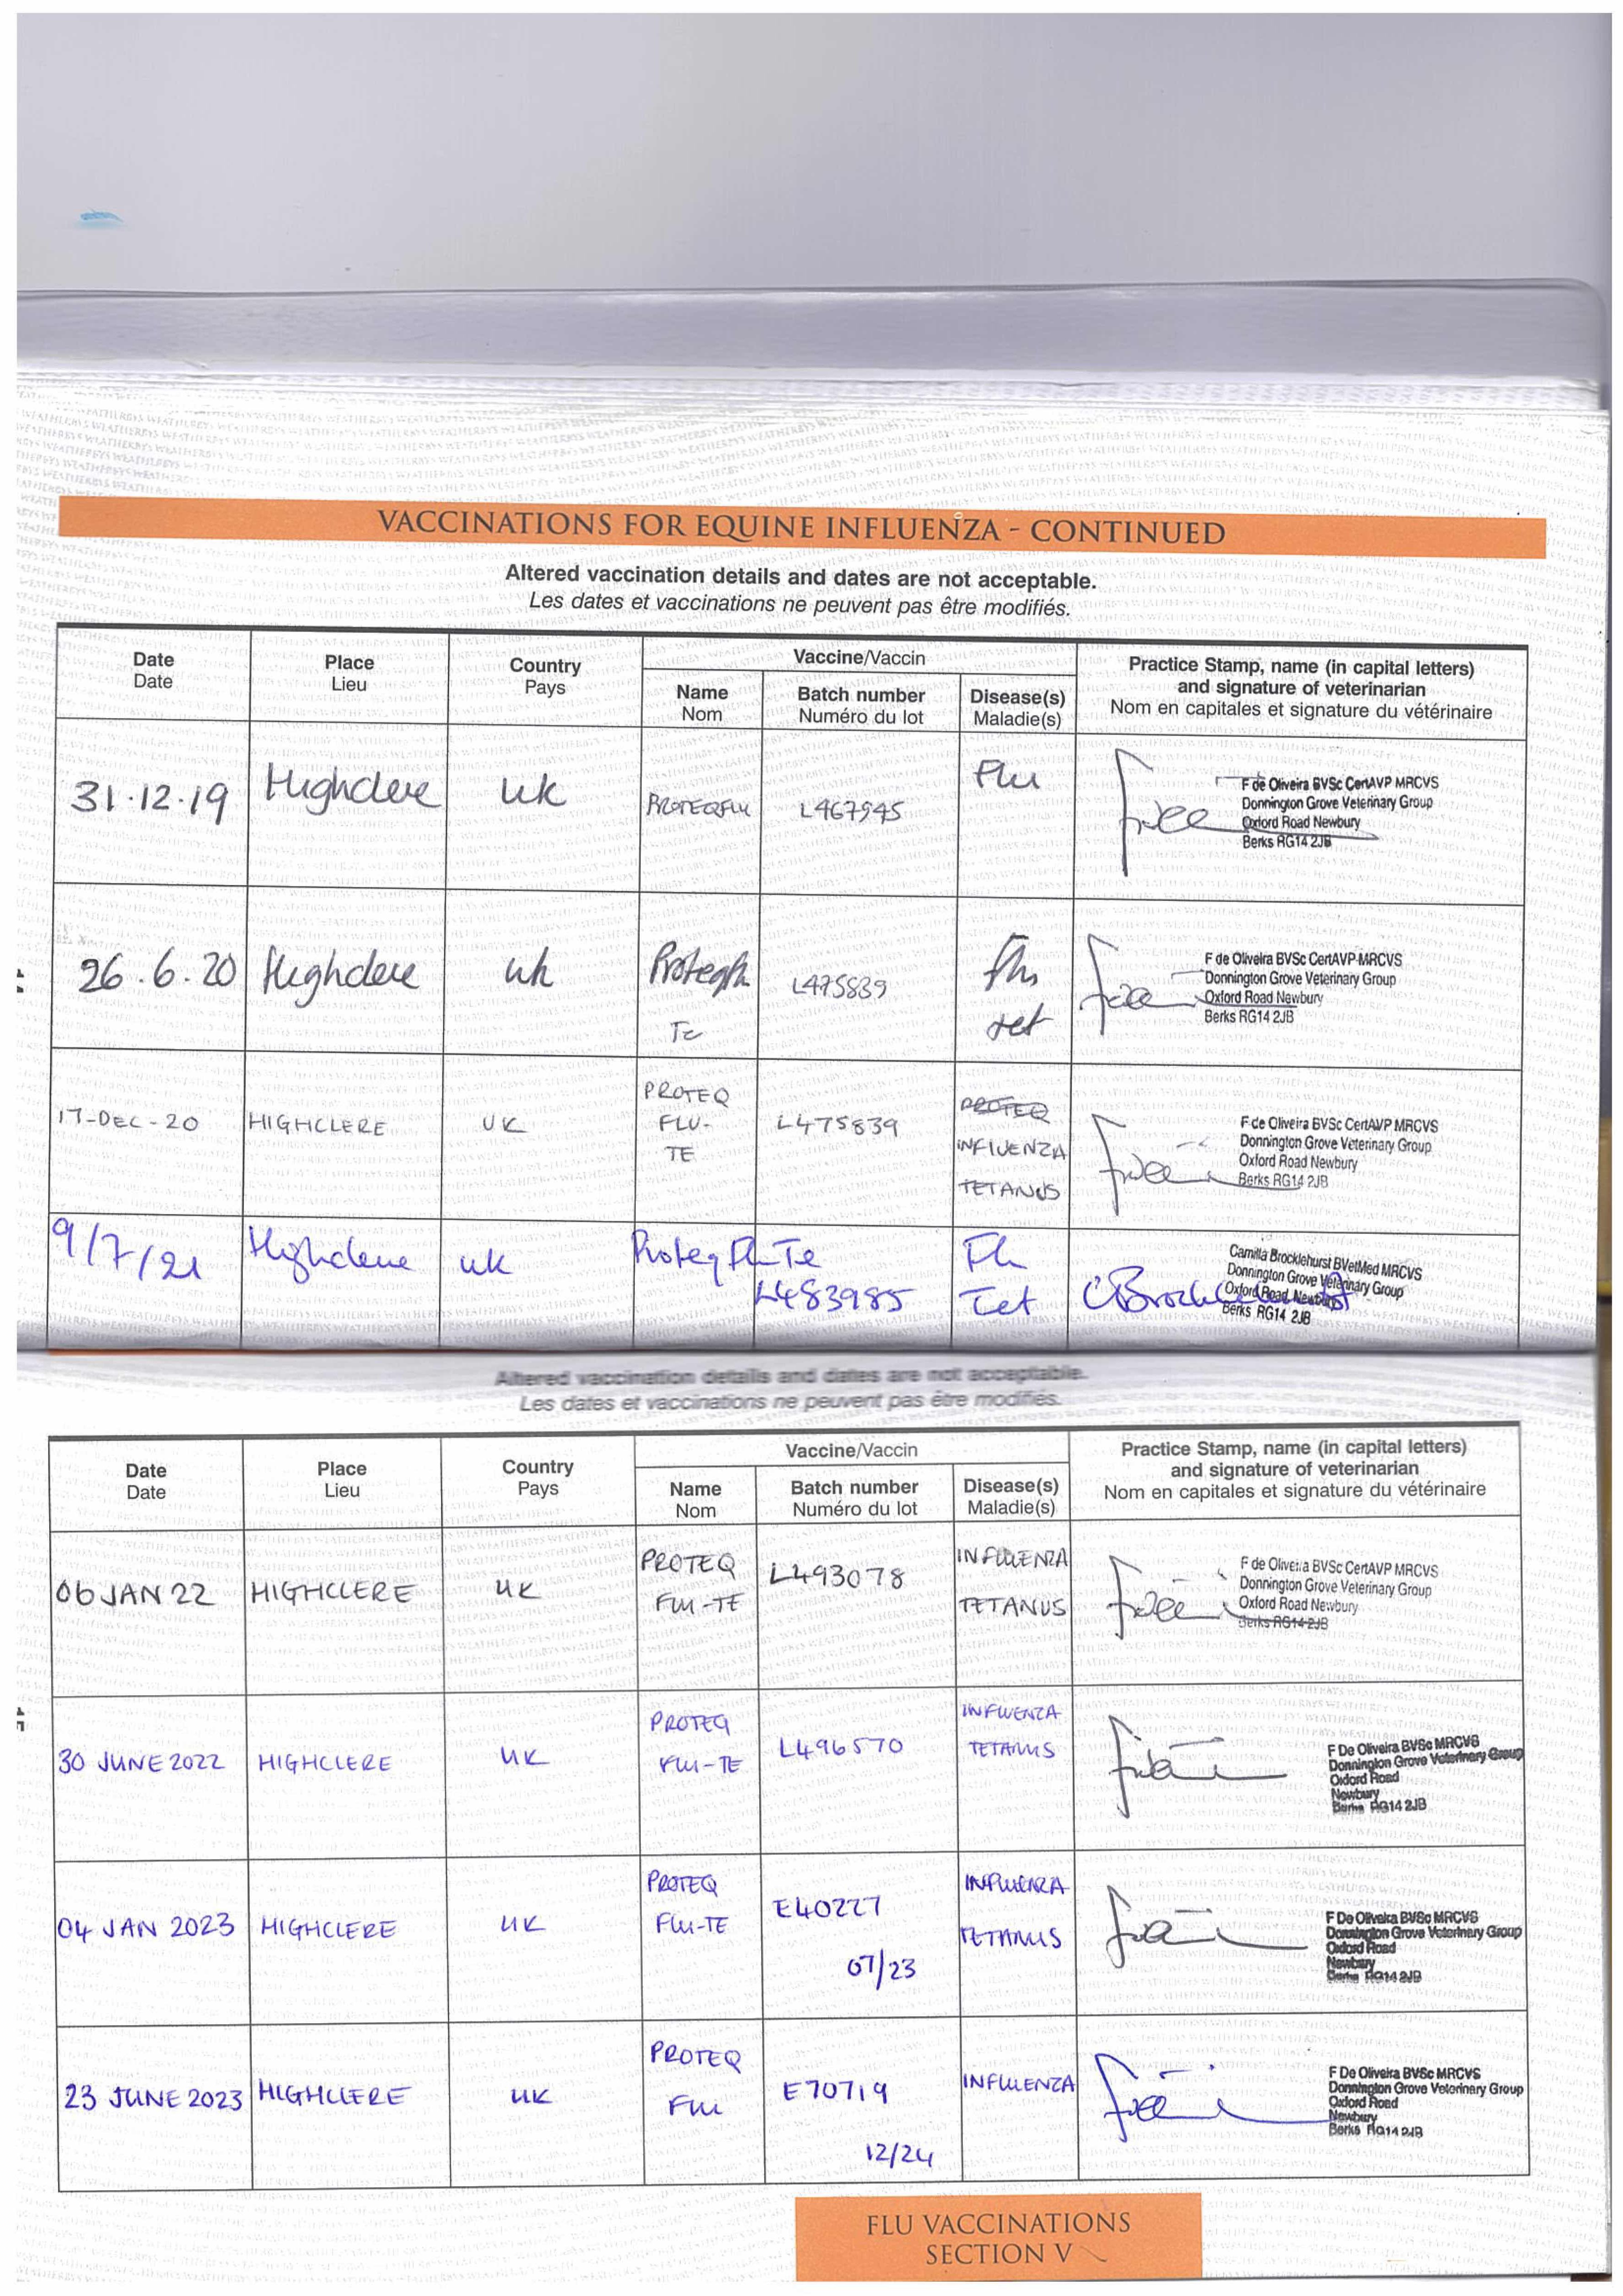 VACCINATIONS FOR EQUINE INFLUENZA - CONTINUED
Altered vaccination details and dates are not acceptable.
Les dates et vaccinations ne peuvent pas être modifiés.
Date Place Country Vaccine/Vaccin Practice Stamp, name (in capital letters)
Date Lieu Pays Name Batch number Disease(s) and signature of veterinarian
Nom Numéro du lot Maladie(s) Nom en capitales et signature du vétérinaire
31.12.19 Highclere UK PROTEQFLU L467945 Flu
F de Oliveira BVSc CertAVP MRCVS
Donnington Grove Veterinary Group
Oxford Road Newbury
Berks RG14 2JB
26.6.20 Highclere UK Proteqflu L475839 Flu
Te tet
F de Oliveira BVSc CertAVP MRCVS
Donnington Grove Veterinary Group
Oxford Road Newbury
Berks RG14 2JB
17-DEC-20 HIGHCLERE UK PROTEQ L475839 PROTEQ
FLU- INFLUENZA
TE TETANUS
F de Oliveira BVSc CertAVP MRCVS
Donnington Grove Veterinary Group
Oxford Road Newbury
Berks RG14 2JB
9/7/21 Highclere UK Proteq Flu Te Flu
L483985 Tet CBrocklehurst
Camilla Brocklehurst BVetMed MRCVS
Donnington Grove Veterinary Group
Oxford Road, Newbury
Berks RG14 2JB
Altered vaccination details and dates are not acceptable.
Les dates et vaccinations ne peuvent pas être modifiés.
Date Place Country Vaccine/Vaccin Practice Stamp, name (in capital letters)
Date Lieu Pays Name Batch number Disease(s) and signature of veterinarian
Nom Numéro du lot Maladie(s) Nom en capitales et signature du vétérinaire
06 JAN 22 HIGHCLERE UK PROTEQ L493078 INFLUENZA
FLU-TE TETANUS
F de Oliveira BVSc CertAVP MRCVS
Donnington Grove Veterinary Group
Oxford Road Newbury
Berks RG14 2JB
30 JUNE 2022 HIGHCLERE UK PROTEQ L496570 INFLUENZA
FLU-TE TETANUS
F De Oliveira BVSc MRCVS
Donnington Grove Veterinary Group
Oxford Road
Newbury
Berks RG14 2JB
04 JAN 2023 HIGHCLERE UK PROTEQ E40227 INFLUENZA
FLU-TE TETANUS
07/23
F De Oliveira BVSc MRCVS
Donnington Grove Veterinary Group
Oxford Road
Newbury
Berks RG14 2JB
23 JUNE 2023 HIGHCLERE UK PROTEQ E70719 INFLUENZA
FLU
12/24
F De Oliveira BVSc MRCVS
Donnington Grove Veterinary Group
Oxford Road
Newbury
Berks RG14 2JB
FLU VACCINATIONS
SECTION V